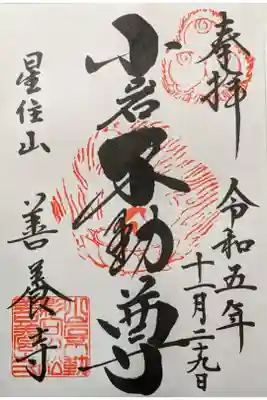 奉拝
令和五年
十一月二十九日
小岩不動尊
星住山
善養寺